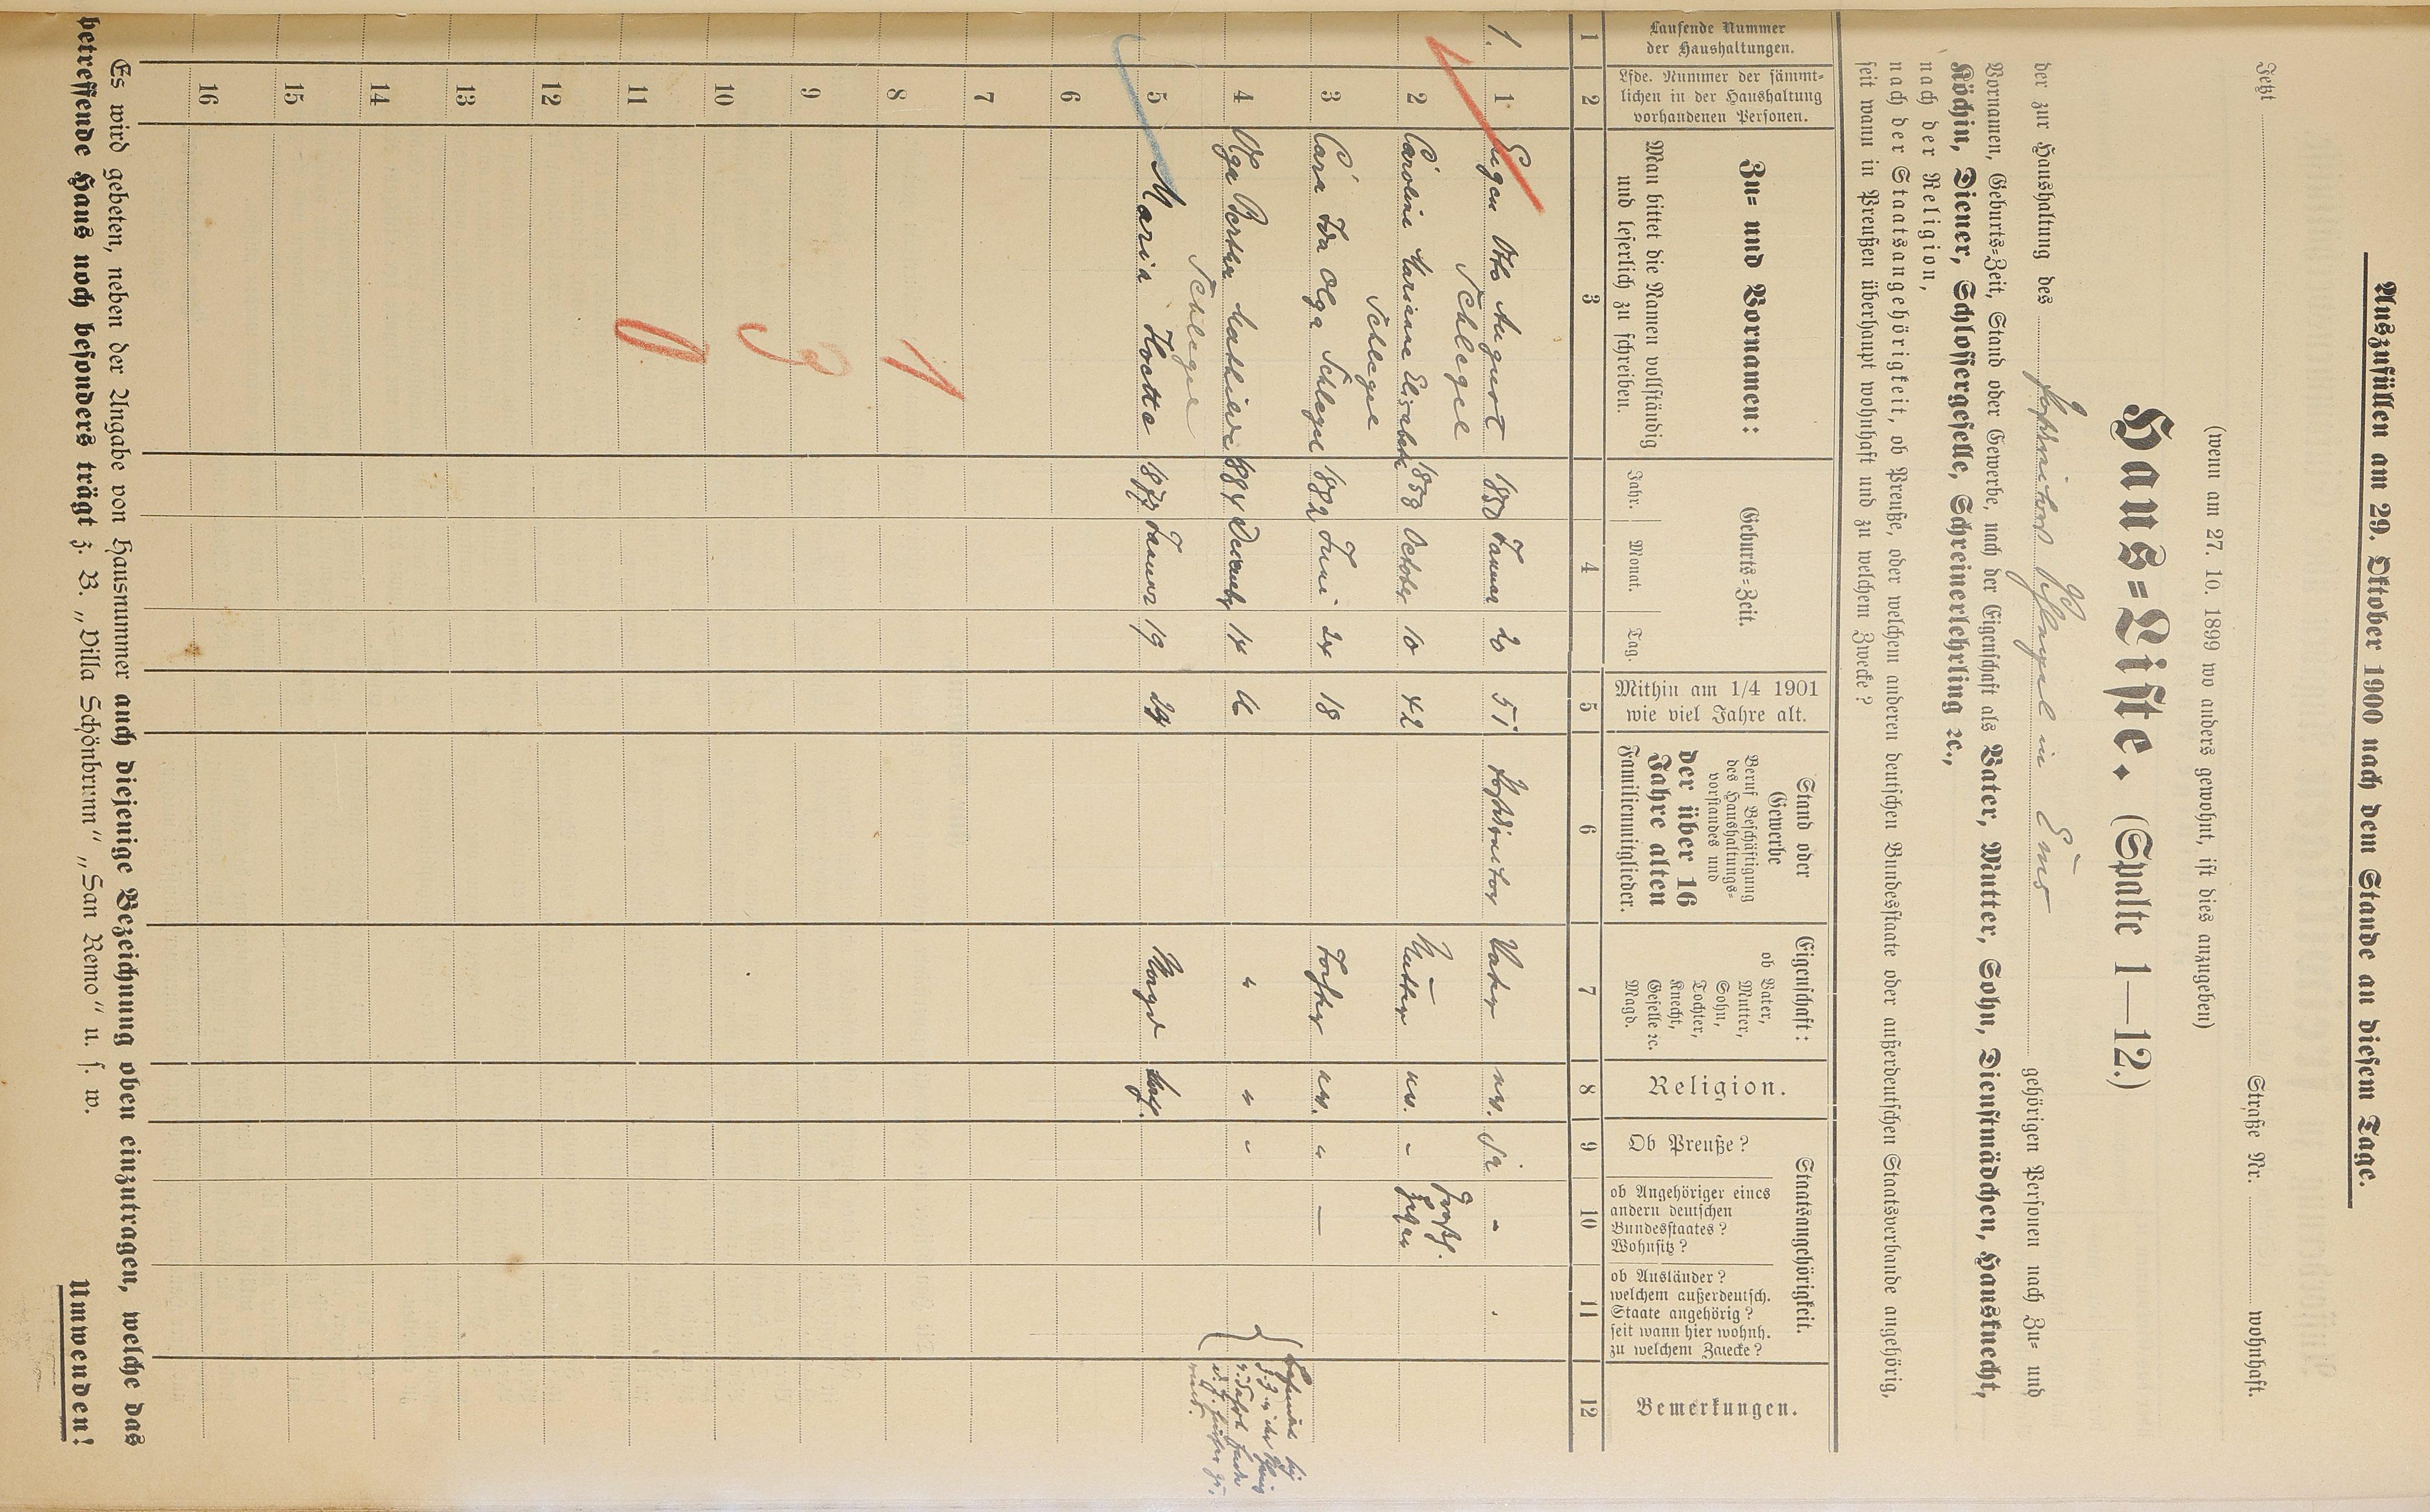 Auszufüllen am 29. Oktober 1900 nach dem Stande an diesem Tage.
Jetzt Straße Nr. wohnhaft.
(wenn am 27. 10. 1899 wo anders gewohnt, ist dies anzugeben)
Haus=Liste. (Spalte 1—12.)
der zur Haushaltung des Schlegel in Ems gehörigen Personen nach Zu= und
Vornamen, Geburts=Zeit, Stand oder Gewerbe, nach der Eigenschaft als Vater, Mutter, Sohn, Dienstmädchen, Hausknecht,
Köchin, Diener, Schlossergeselle, Schreinerlehrling ꝛc.,
nach der Religion,
nach der Staatsangehörigkeit, ob Preuße, oder welchem anderen deutschen Bundesstaate oder außerdeutschen Staatsverbande angehörig,
seit wann in Preußen überhaupt wohnhaft und zu welchem Zwecke?
Laufende Nummer
der Haushaltungen.
Lfde. Nummer der sämmt=
lichen in der Haushaltung
vorhandenen Personen.
Zu= und Vornamen:
Man bittet die Namen vollständig
und leserlich zu schreiben.
Geburts=Zeit.
Jahr. Monat. Tag.
Mithin am 1/4 1901
wie viel Jahre alt.
Stand oder
Gewerbe
Beruf Beschäftigung
des Haushaltungs=
vorstandes und
der über 16
Jahre alten
Familienmitglieder.
Eigenschaft:
ob Vater,
Mutter,
Sohn,
Tochter,
Knecht,
Geselle ꝛc.
Magd.
Religion.
Staatsangehörigkeit.
Ob Preuße?
ob Angehöriger eines
andern deutschen
Bundesstaates?
Wohnsitz?
ob Ausländer?
welchem außerdeutsch.
Staate angehörig?
seit wann hier wohnh.
zu welchem Zwecke?
Bemerkungen.
1 2 3 4 5 6 7 8 9 10 11 12
1. 1 Eugen Otto August 1850 Januar 20 51 Vater ev. Ja -
Schlegel
2 Caroline Mariane Elisabeth 1858 October 10 42 Mutter ev. -
Schlegel
3 Clara Ida Olga Schlegel 1882 Juni 24 18 Tochter ev. " —
4 Olga Bertha Mathilde 1884 December 14 16 " " "
Schlegel
5 Maria 1877 Januar 19 24 Magd kath.
6
7
8 1
9 3
10
11 0
12
13
14
15
16
Es wird gebeten, neben der Angabe von Hausnummer auch diejenige Bezeichnung oben einzutragen, welche das
betreffende Haus noch besonders trägt z. B. „Villa Schönbrunn“ „San Remo“ u. s. w.
Umwenden!